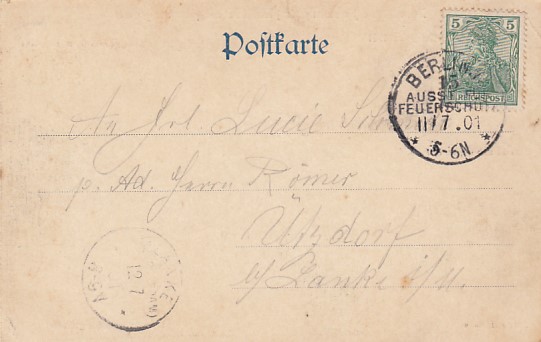 Postkarte
5
REICHSPOST
BERLIN
15
AUSST. F.
FEUERSCHUTZ
11/7.01
* 5-6N *
An Frl. Lucie
p. Ad. Herrn Römer
Utzdorf
b/ Lanke i/M.
LANKE
12.7